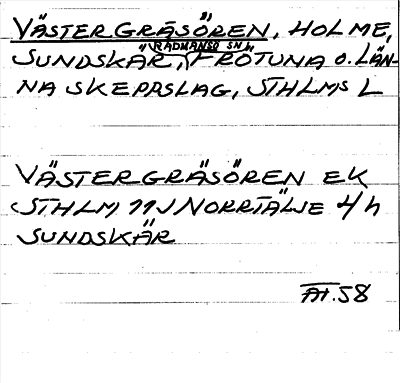 VÄSTER GRÄSÖREN, HOLME,
"RÅDMANSÖ SN"
SUNDSKÄR, FRÖTUNA O. LÄN-
NA SKEPPSLAG, STHLMS L
VÄSTERGRÄSÖREN EK
STHLM 11J NORRTÄLJE 4h
SUNDSKÄR
58